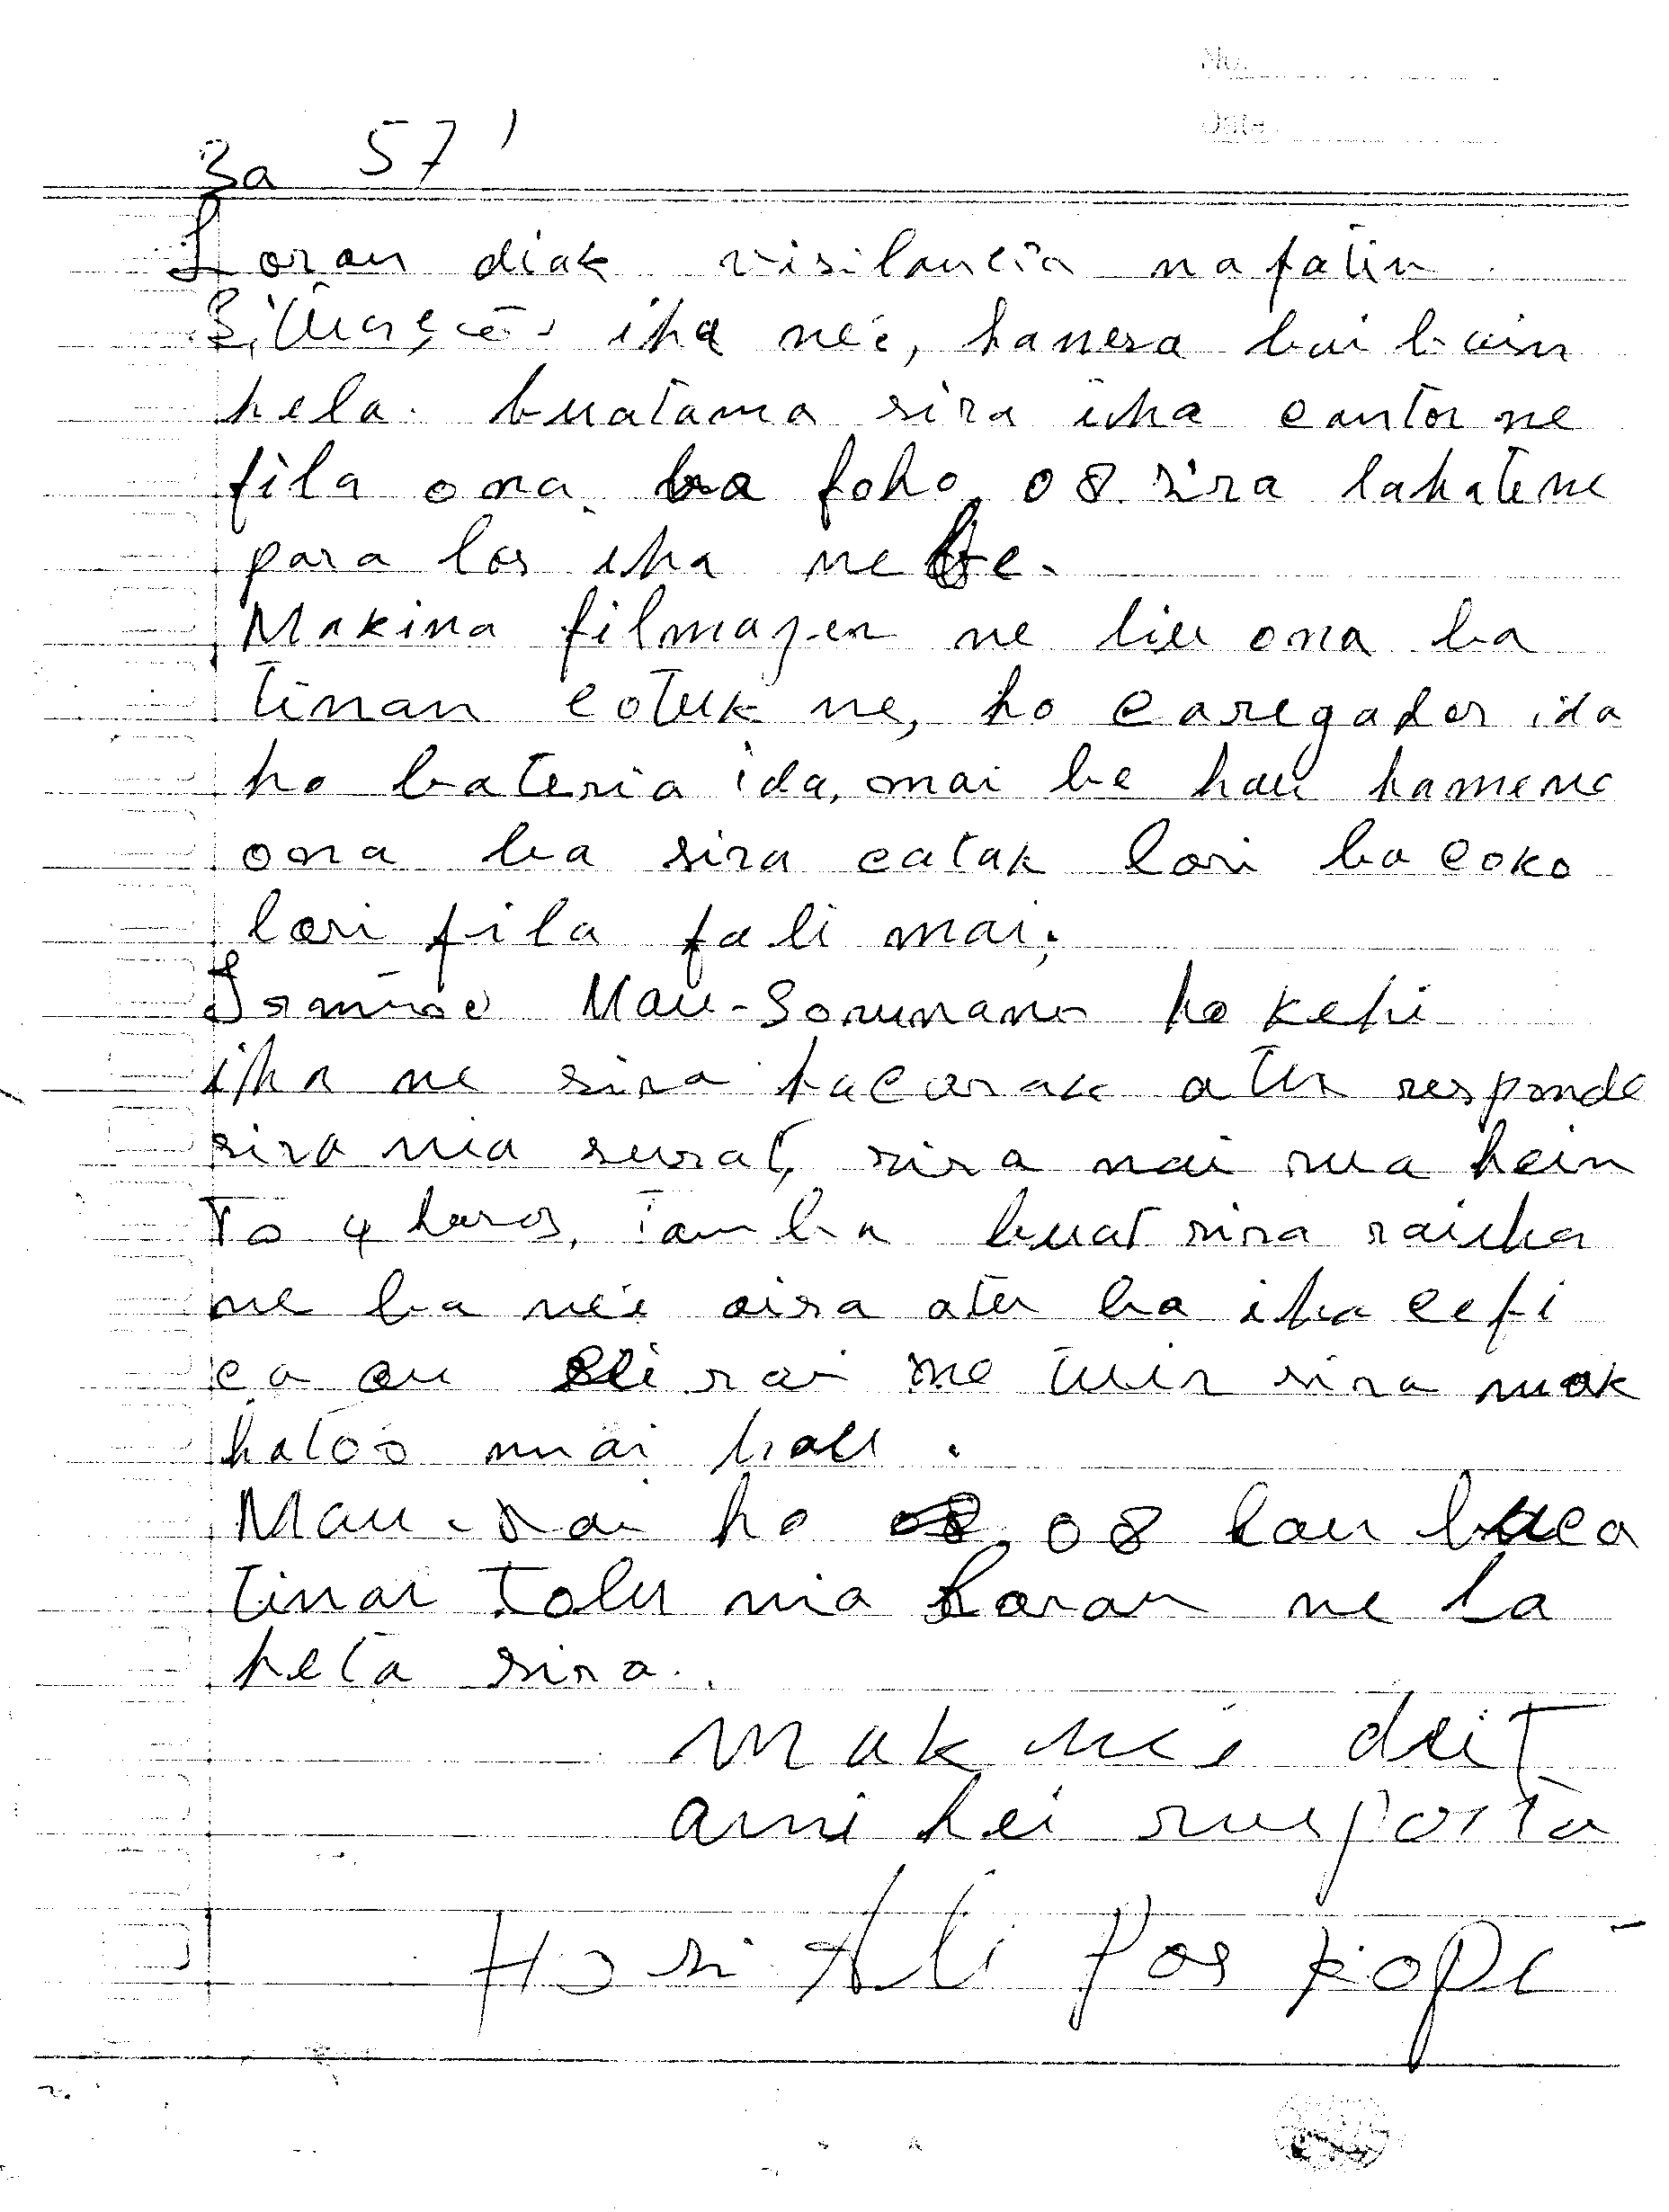 No.
Date
Ba 57'
Loran diak visilancia nafatin
Situação iha neé, hanesa bai bain
hela. buatama sira iha cantor ne
fila ona ba foho, 08 sira lahatene
para los iha nebe.
Makina filmazen ne liu ona ba
tinan cotuk ne, ho caregador ida
ho bateria ida, mai be hau hamenu
ona ba sira catak lori ba coko
lori fila fali mai.
Mau-Sorunamo ho Kefi
iha ne sira hacarak atu responde
sira nia surat, sira nai rua hein
to 4 horas, tamba buat sira raiha
ne ba neé sira atu ba iha cefi
ca ou rai ne tuir sira mak
hatoó mai hau.
Mau-Nai ho 08 hau buca
tinar tolu nia laran ne la
heta sira.
mak neé deit
ami hei resposta
Hosi Ali Pos